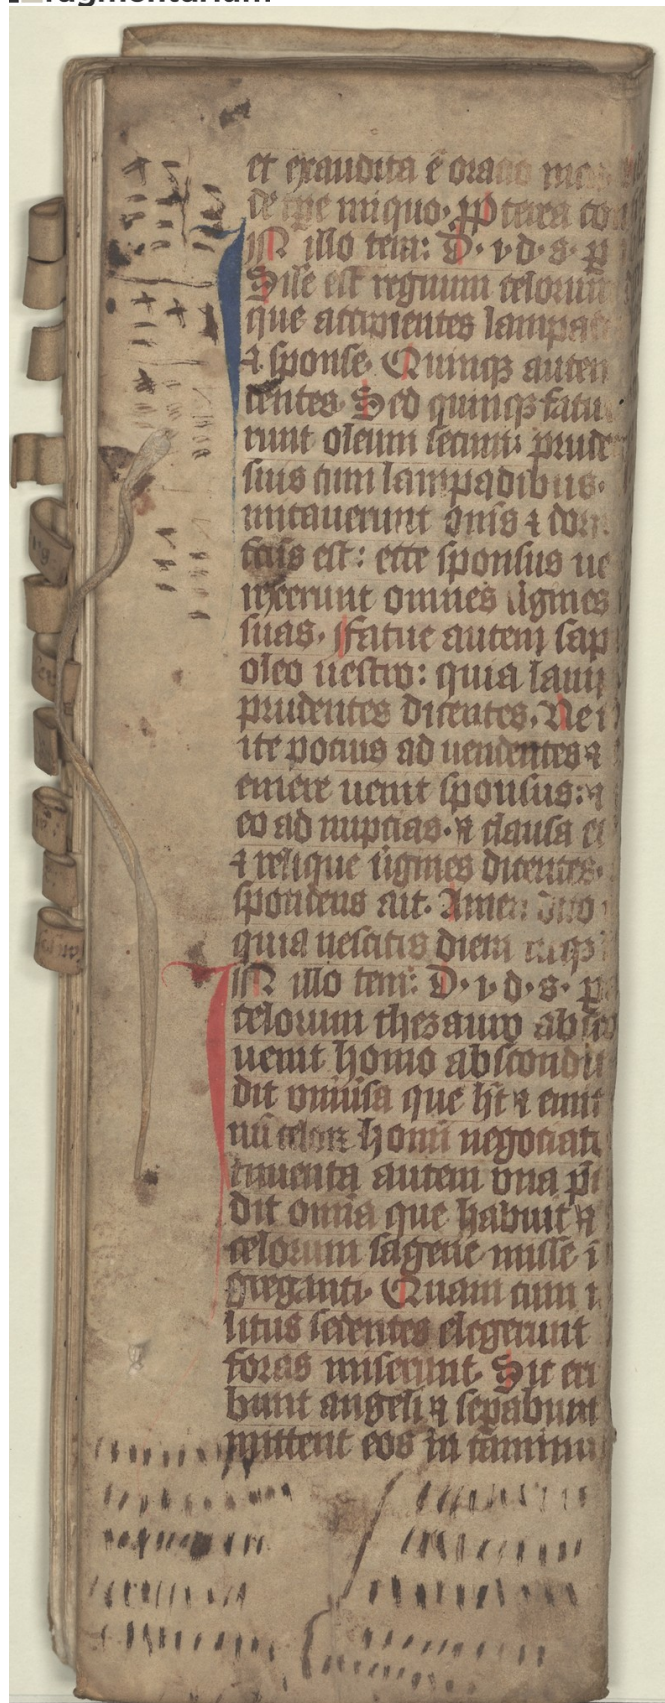 et exaudita ē oratio mea
de tp̄e iniquo. ꝓpterea con
IN illo tem: D. i. d. s. p
Sil'e est regnum celorum
que accipientes lampad
⁊ sponse. Quinqꝫ autem
dentes. Sed quinqꝫ fatu
runt oleum secum: prude
suis cum lampadibus.
mitauerunt om̄s ⁊ dorm
ctus est: ecce sponsus ue
rexerunt omnes uirgines
suas. ffatue autem sap
oleo uestro: quia lamp
prudentes dicentes. Ne
ite potius ad uendentes ⁊
emere uenit sponsus: ⁊
eo ad nuptias. ⁊ clausa e
⁊ relique uirgines dicentes.
spondens ait. Amen dico
quia nescitis diem neqꝫ
IN illo tem: D. i. d. s. p
celorum thesauro absco
uenit homo abscondit
dit uniu'sa que h't ⁊ emit
nū celoꝝ homini negociat
Inuenta autem una p̄
dit omnia que habuit ⁊
celorum sagene misse i
greganti. Quam cum i
litus sedentes elegerunt
foras miserunt. Sic eri
bunt angeli ⁊ sepabunt
mittent eos in caminu